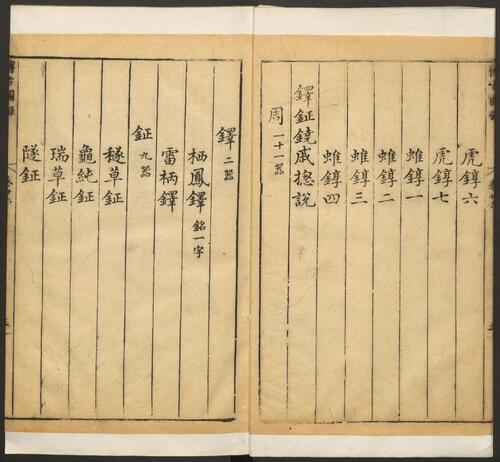 虎錞六
虎錞七
蜼錞一
蜼錞二
蜼錞三
蜼錞四
鐸鉦鐃戚揔說
周一十一器
鐸二器
栖鳳鐸銘一字
雷柄鐸
鉦九器
穟草鉦
龜純鉦
瑞草鉦
隧鉦